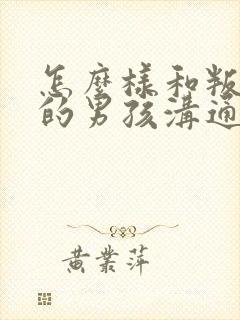 怎麼樣和叛
的男孩溝通
黃業萍